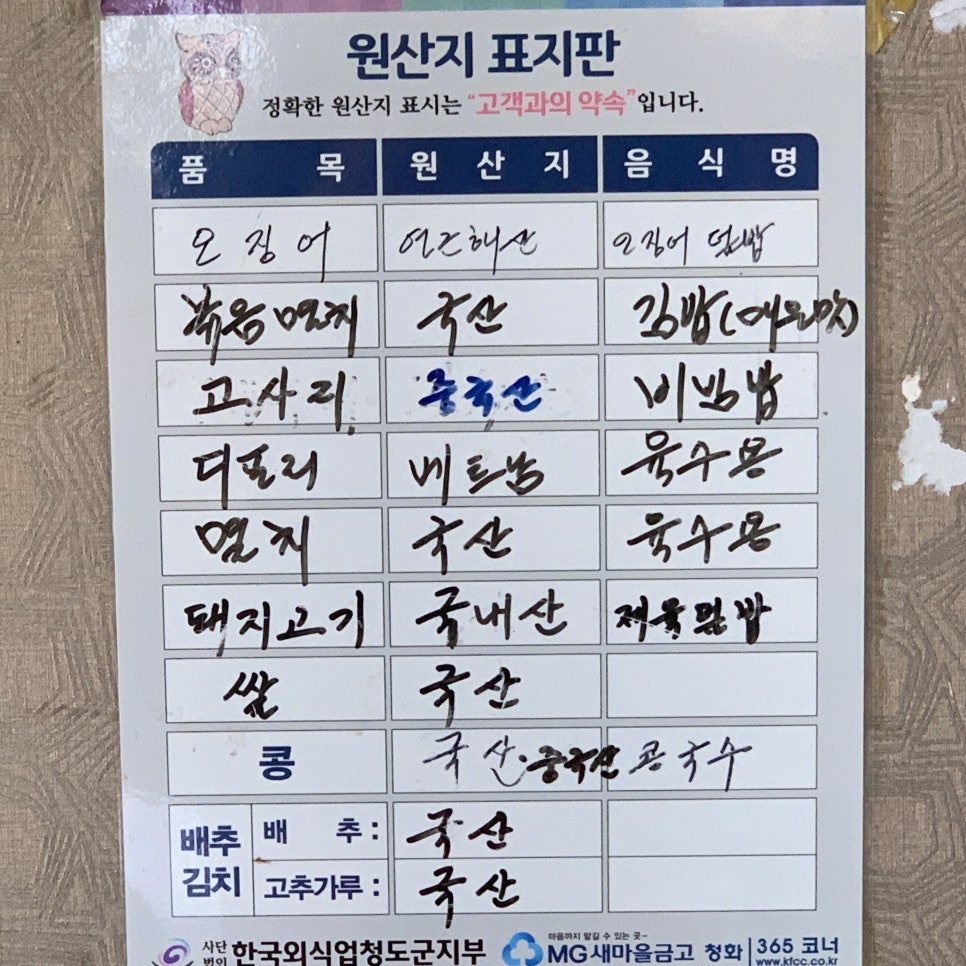 원산지 표지판
정확한 원산지 표시는 "고객과의 약속"입니다.
품 목 원 산 지 음 식 명
오징어 연근해산 오징어 덮밥
볶음멸치 국산 김밥(매운맛)
고사리 중국산 비빔밥
디포리 베트남 육수용
멸치 국산 육수용
돼지고기 국내산 제육덮밥
쌀 국산
콩 국산·중국산 콩국수
배추김치 배 추 : 국산
고추가루 : 국산
사단법인 한국외식업청도군지부 마음까지 맡길 수 있는 곳~ MG새마을금고 청화 365 코너
www.kfcc.co.kr